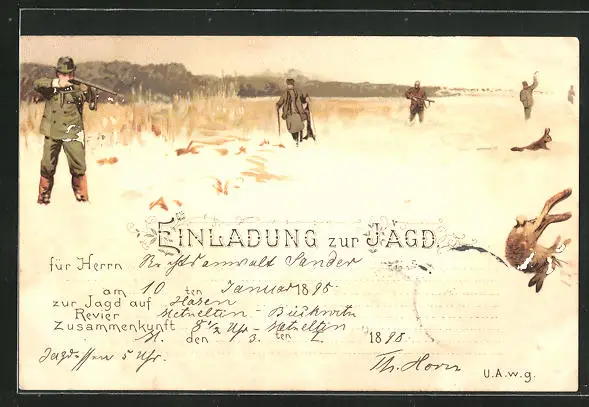 EINLADUNG zur JAGD.
für Herrn Rechtsanwalt Sander
am 10 ten Januar 1898
zur Jagd auf Hasen
Revier
Zusammenkunft 8½ Uhr
den 3. ten 1. 1898
Jagdessen 5 Uhr. Th. Horn
U.A.w.g.